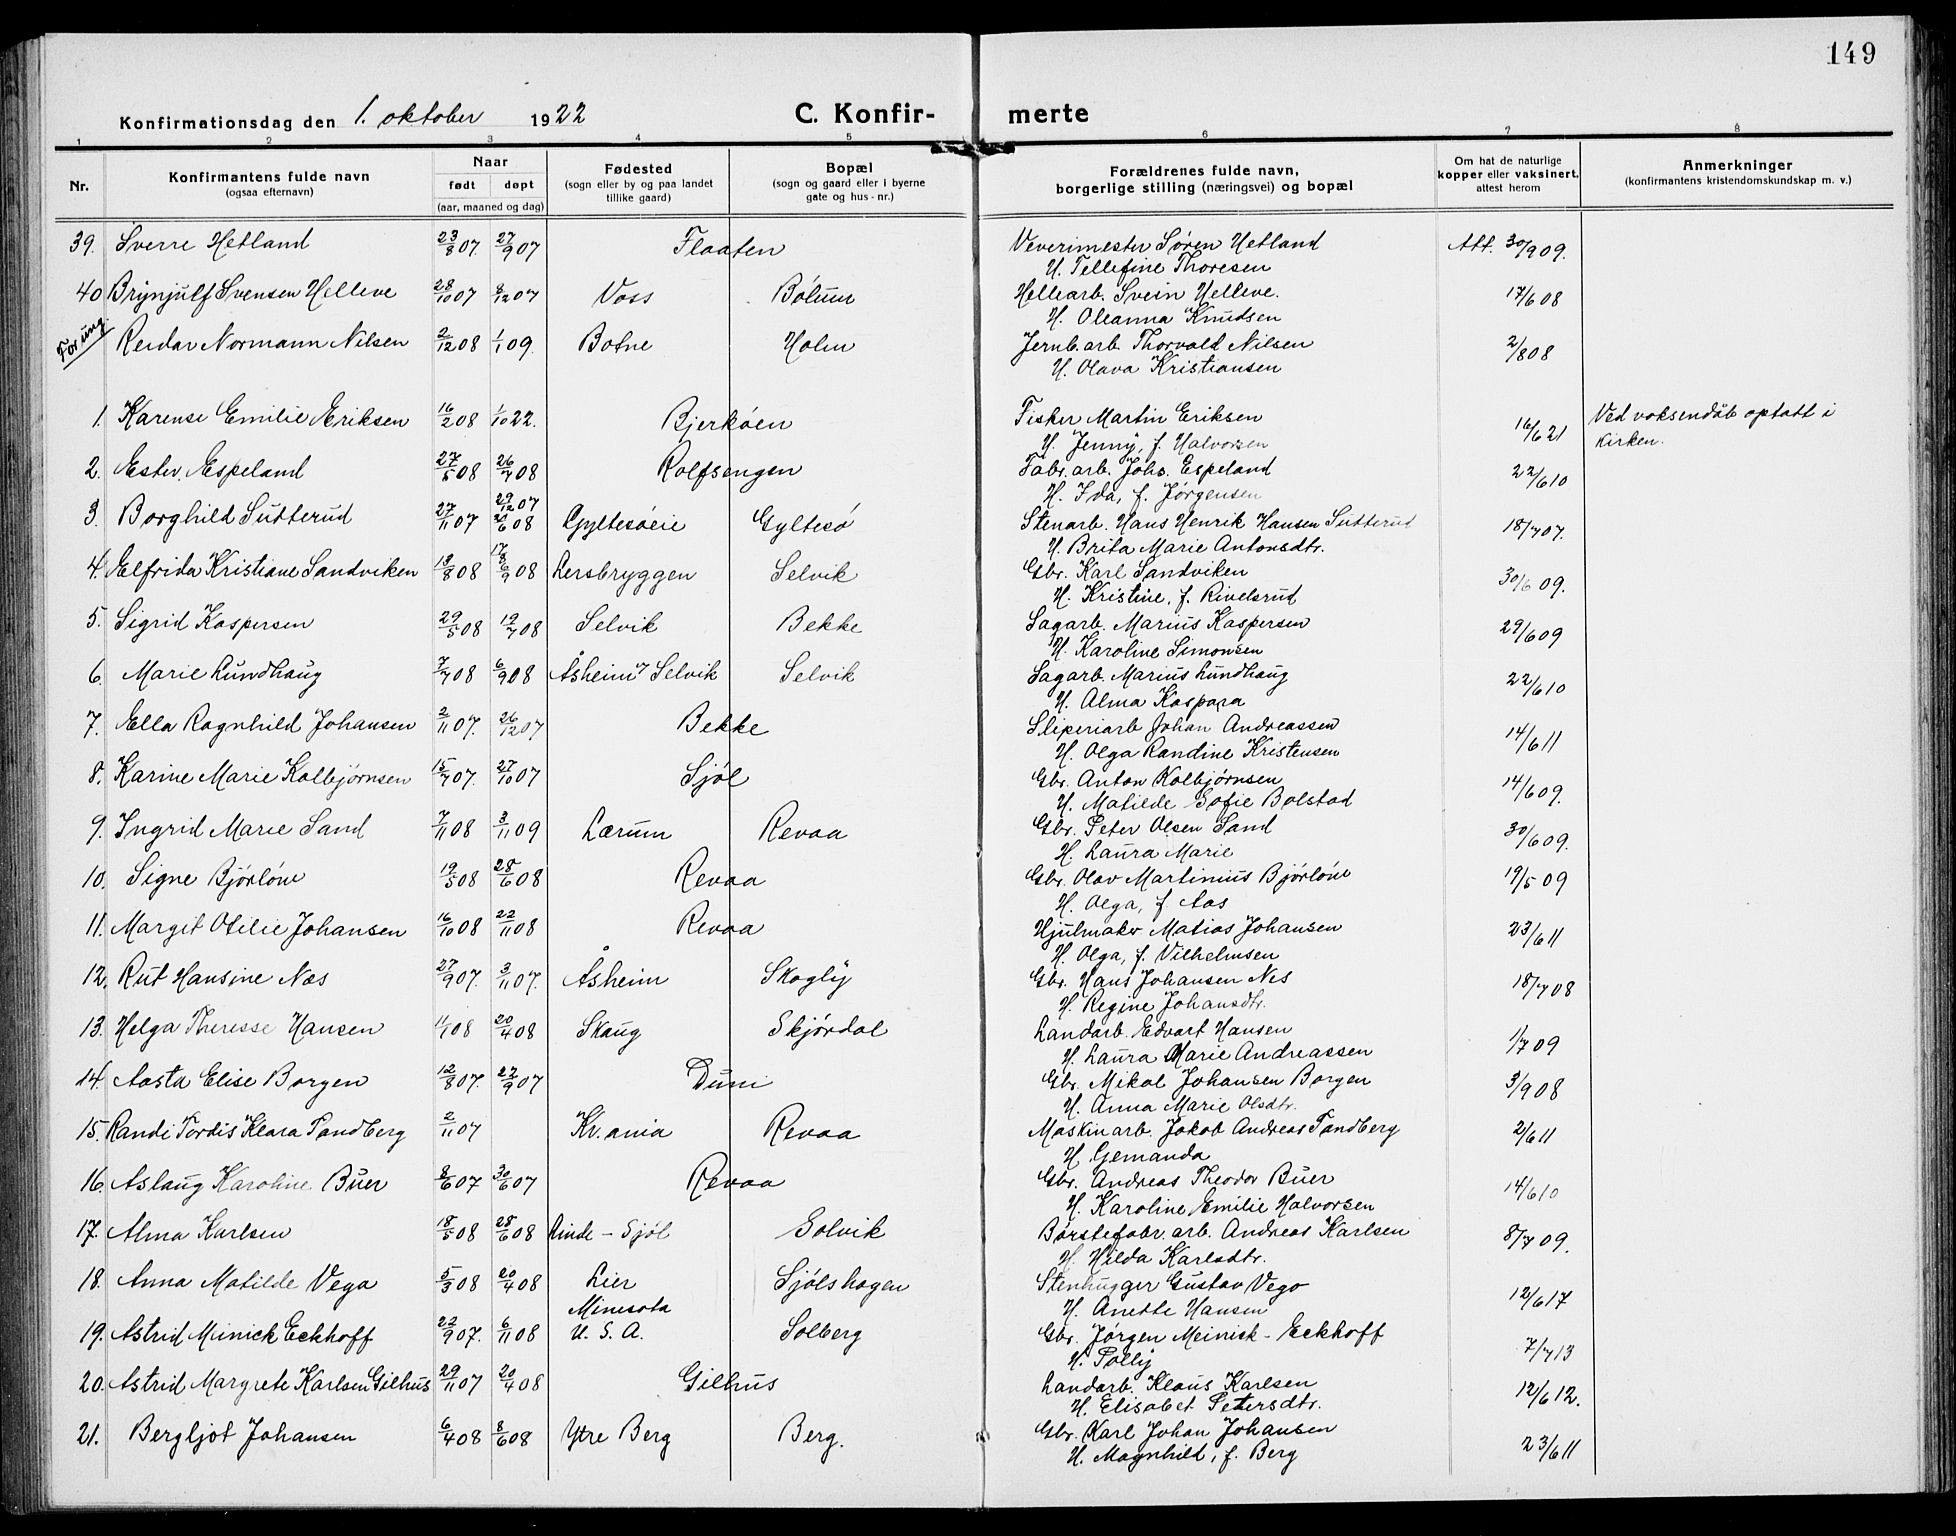 149
Konfirmationsdag den 1. oktober 1922 C. Konfirmerte
1 2 3 4 5 6 7 8
Nr. Konfirmantens fulde navn (ogsaa efternavn) Naar født døpt (aar, maaned og dag) Fødested (sogn eller by og paa landet tillike gaard) Bopæl (sogn og gaard eller i byerne gate og hus-nr.) Forældrenes fulde navn, borgerlige stilling (næringsvei) og bopæl Om hat de naturlige kopper eller vaksinert, attest herom Anmerkninger (konfirmantens kristendomskundskap m. v.)
39. Sverre Hetland 23/8 07. 27/9 07 Flaaten Veverimester Søren Hetland Att. 30/9 09.
H. Tellefine Thoresen
40 Brynjulf Svensen Helleve 28/10 07 8/12 07 Voss Bolum Hellearb. Svein Helleve. 17/6 08
H. Oleanna Knudsen
For ung. Reidar Normann Nilsen 2/12 08 1/1 09. Botne Holm Jernb. arb. Thorvald Nilsen 2/8 08
H. Olava Kristiansen
1. Karense Emilie Eriksen 16/2 08 1/10 22. Bjerkøen Fisker Martin Eriksen 16/6 21 Ved voksendåb optatt i
H. Jenny, f. Halvorsen kirken.
2. Ester Espeland 27/5 08 26/7 08 Rolfsengen Fabr. arb. Johs. Espeland 22/6 10
H. Ida, f. Jørgensen
3. Borghild Sutterud 27/11 07 29/12 07 21/6 08 Gyltesøeie Gyltesø Stenarb. Hans Henrik Hansen Sutterud 18/7 07.
H. Brita Marie Antonsdtr.
4. Elfrida Kristiane Sandviken 13/8 08 6/9 08 Lersbryggen Selvik Gbr. Karl Sandviken 30/6 09.
H. Kristine, f. Rivelsrud
5. Sigrid Kaspersen 29/5 08 19/7 08 Selvik Bekke Sagarb. Marius Kaspersen 29/6 09
H. Karoline Simonsen
6. Marie Lundhaug 7/7 08 6/9 08 Åsheim Selvik Selvik Sagarb. Marius Lundhaug 22/6 10
H. Alma Kaspara
7. Ella Ragnhild Johansen 2/11 07. 26/12 07 Bekke Sliperiarb Johan Andreassen 14/6 11
H. Olga Randine Kristensen
8. Karine Marie Kolbjørnsen 15/7 07. 27/10 07 Sjøl Gbr. Anton Kolbjørnsen 14/6 09.
H. Matilde Sofie Bolstad
9. Ingrid Marie Sand 7/11 08 3/11 09 Lærum Revaa Gbr. Peter Olsen Sand 30/6 09.
H. Laura Marie
10. Signe Bjørløw 19/5 08 28/6 08 Revaa Gbr. Olav Martinius Bjørløw 19/5 09
H. Olga, f. Aas
11. Margit Otilie Johansen 16/10 08 22/11 08 Revaa Hjulmaker Matias Johansen 23/6 11
H. Olga, f. Vilhelmsen
12. Rut Hansine Næs 27/9 07. 3/11 07. Åsheim Skogly Gbr. Hans Johansen Nes 18/7 08
H. Regine Johansdtr.
13. Helga Theresse Hansen 1/1 08 20/4 08 Skaug Skjørdal Landarb. Edvart Hansen 1/7 09
H. Laura Marie Andreassen
14. Aasta Elise Borgen 12/8 07. 22/9 07 Duni Gbr. Mikal Johansen Borgen 3/9 08
H. Anna Marie Olsdtr.
15. Randi Tordis Klara Sandberg 2/11 07 Kr.ania Revaa Maskinarb. Jakob Andreas Sandberg 2/6 11
H. Gemanda
16. Aslaug Karoline Buer 8/6 07 30/6 07 Revaa Gbr. Andreas Theodor Buer 14/6 10
H. Karoline Emilie Halvorsen
17. Alma Karlsen 18/5 08 28/6 08 Linde - Sjøl Solvik Børstefabr. arb. Andreas Karlsen 8/7 09.
H. Hilda Karlsdtr.
18. Anna Matilde Vega 5/3 08 20/4 08 Lier Sjølshagen Stenhugger Gustav Vego 12/6 17
H. Anette Hansen
19. Astrid Minick Eckhoff 22/9 07. 6/11 08 Minesota U. S. A. Solberg Gbr. Jørgen Meinick - Eckhoff 7/7 13
H. Polly
20. Astrid Margrete Karlsen Gilhus 29/11 07 20/4 08 Gilhus Landarb. Klaus Karlsen 12/6 12.
H. Elisabet Petersdtr.
21. Bergljot Johansen 6/4 08 8/6 08 Ytre Berg Berg. Gbr. Karl Johan Johansen 23/6 11
H. Magnhild, f. Berg